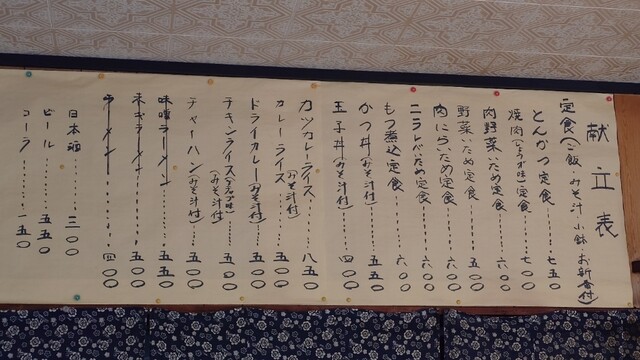 献立表
定食(ご飯・みそ汁 小鉢 お新香付)
とんかつ定食………七五〇
焼肉(しょうが味)定食……七〇〇
肉野菜いため定食……六〇〇
野菜いため定食………五〇〇
肉にらいため定食……六〇〇
ニラレバいため定食……六〇〇
もつ煮込定食………六〇〇
かつ丼(みそ汁付)……五五〇
玉子丼(みそ汁付)……四〇〇
カツカレーライス(みそ汁付)……八五〇
カレーライス(みそ汁付)……五〇〇
ドライカレー(みそ汁付)……五〇〇
チキンライス(みそ汁付)……五〇〇
チャーハン(みそ汁付)……五〇〇
味噌ラーメン………五五〇
ネギラーメン………五〇〇
ラーメン………四〇〇
日本酒………三〇〇
ビール………五五〇
コーラ………一五〇